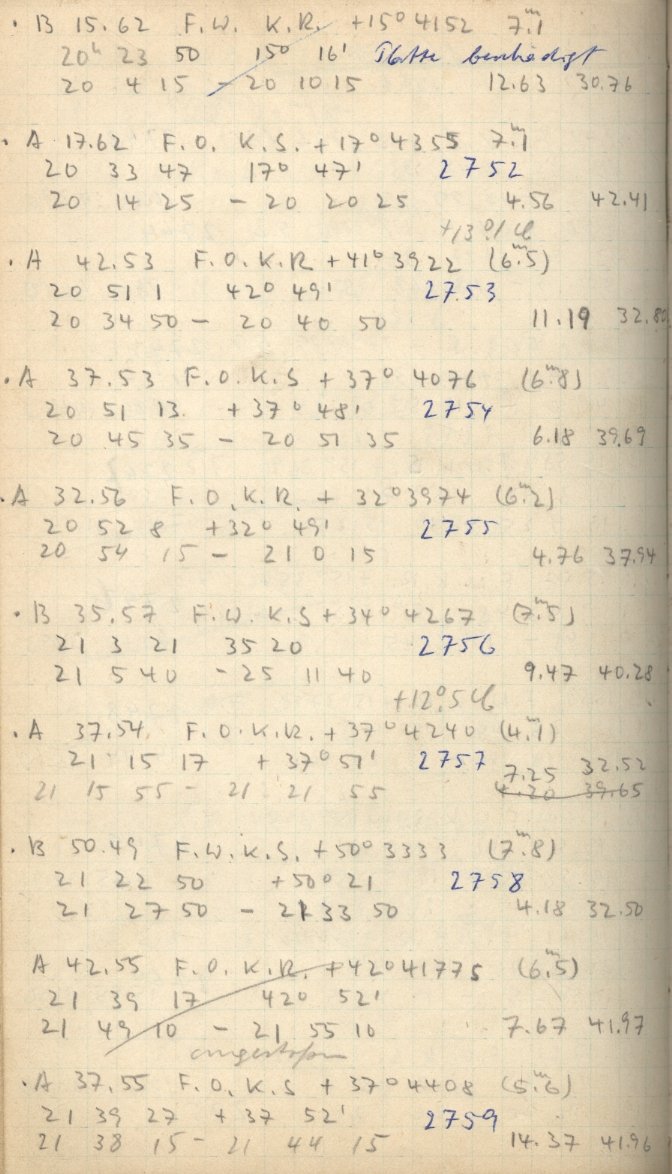 · B 15.62 F.W. K.R. +15° 4152 7.ᵐ1
20ʰ 23 50 15° 16' Platte beschädigt
20 4 15 - 20 10 15 12.63 30.76
· A 17.62 F.O. K.S. +17° 4355 7.ᵐ1
20 33 47 17° 47' 2752
20 14 25 - 20 20 25 4.56 42.41
+13°1 C
· A 42.53 F.O.K.R +41° 3922 (6.ᵐ5)
20 51 1 42° 49' 2753
20 34 50 - 20 40 50 11.19 32.80
· A 37.53 F.O.K.S + 37° 4076 (6.ᵐ8)
20 51 13. +37° 48' 2754
20 45 35 - 20 51 35 6.18 39.69
· A 32.56 F.O.K.R. + 32° 3974 (6.ᵐ2)
20 52 8 +32° 49' 2755
20 54 15 - 21 0 15 4.76 37.94
· B 35.57 F.W.K.S + 34° 4267 (7.ᵐ5)
21 3 21 35 20 2756
21 5 40 - 25 11 40 9.47 40.28
+12°.5 C
· A 37.54. F.O.K.R. + 37° 4240 (4.ᵐ1)
21 15 17 + 37° 51' 2757 7.25 32.52
21 15 55 - 21 21 55 4.20 39.65
· B 50.49 F.W.K.S. +50° 3333 (7.ᵐ8)
21 22 50 +50° 21 2758
21 27 50 - 21 33 50 4.18 32.50
A 42.55 F.O.K.R. +42° 41775 (6.ᵐ5)
21 39 17 42° 52'
21 49 10 - 21 55 10 7.67 41.97
· A 37.55 F.O.K.S + 37° 4408 (5.ᵐ6)
21 39 27 + 37 52' 2759
21 38 15 - 21 44 15 14.37 41.96